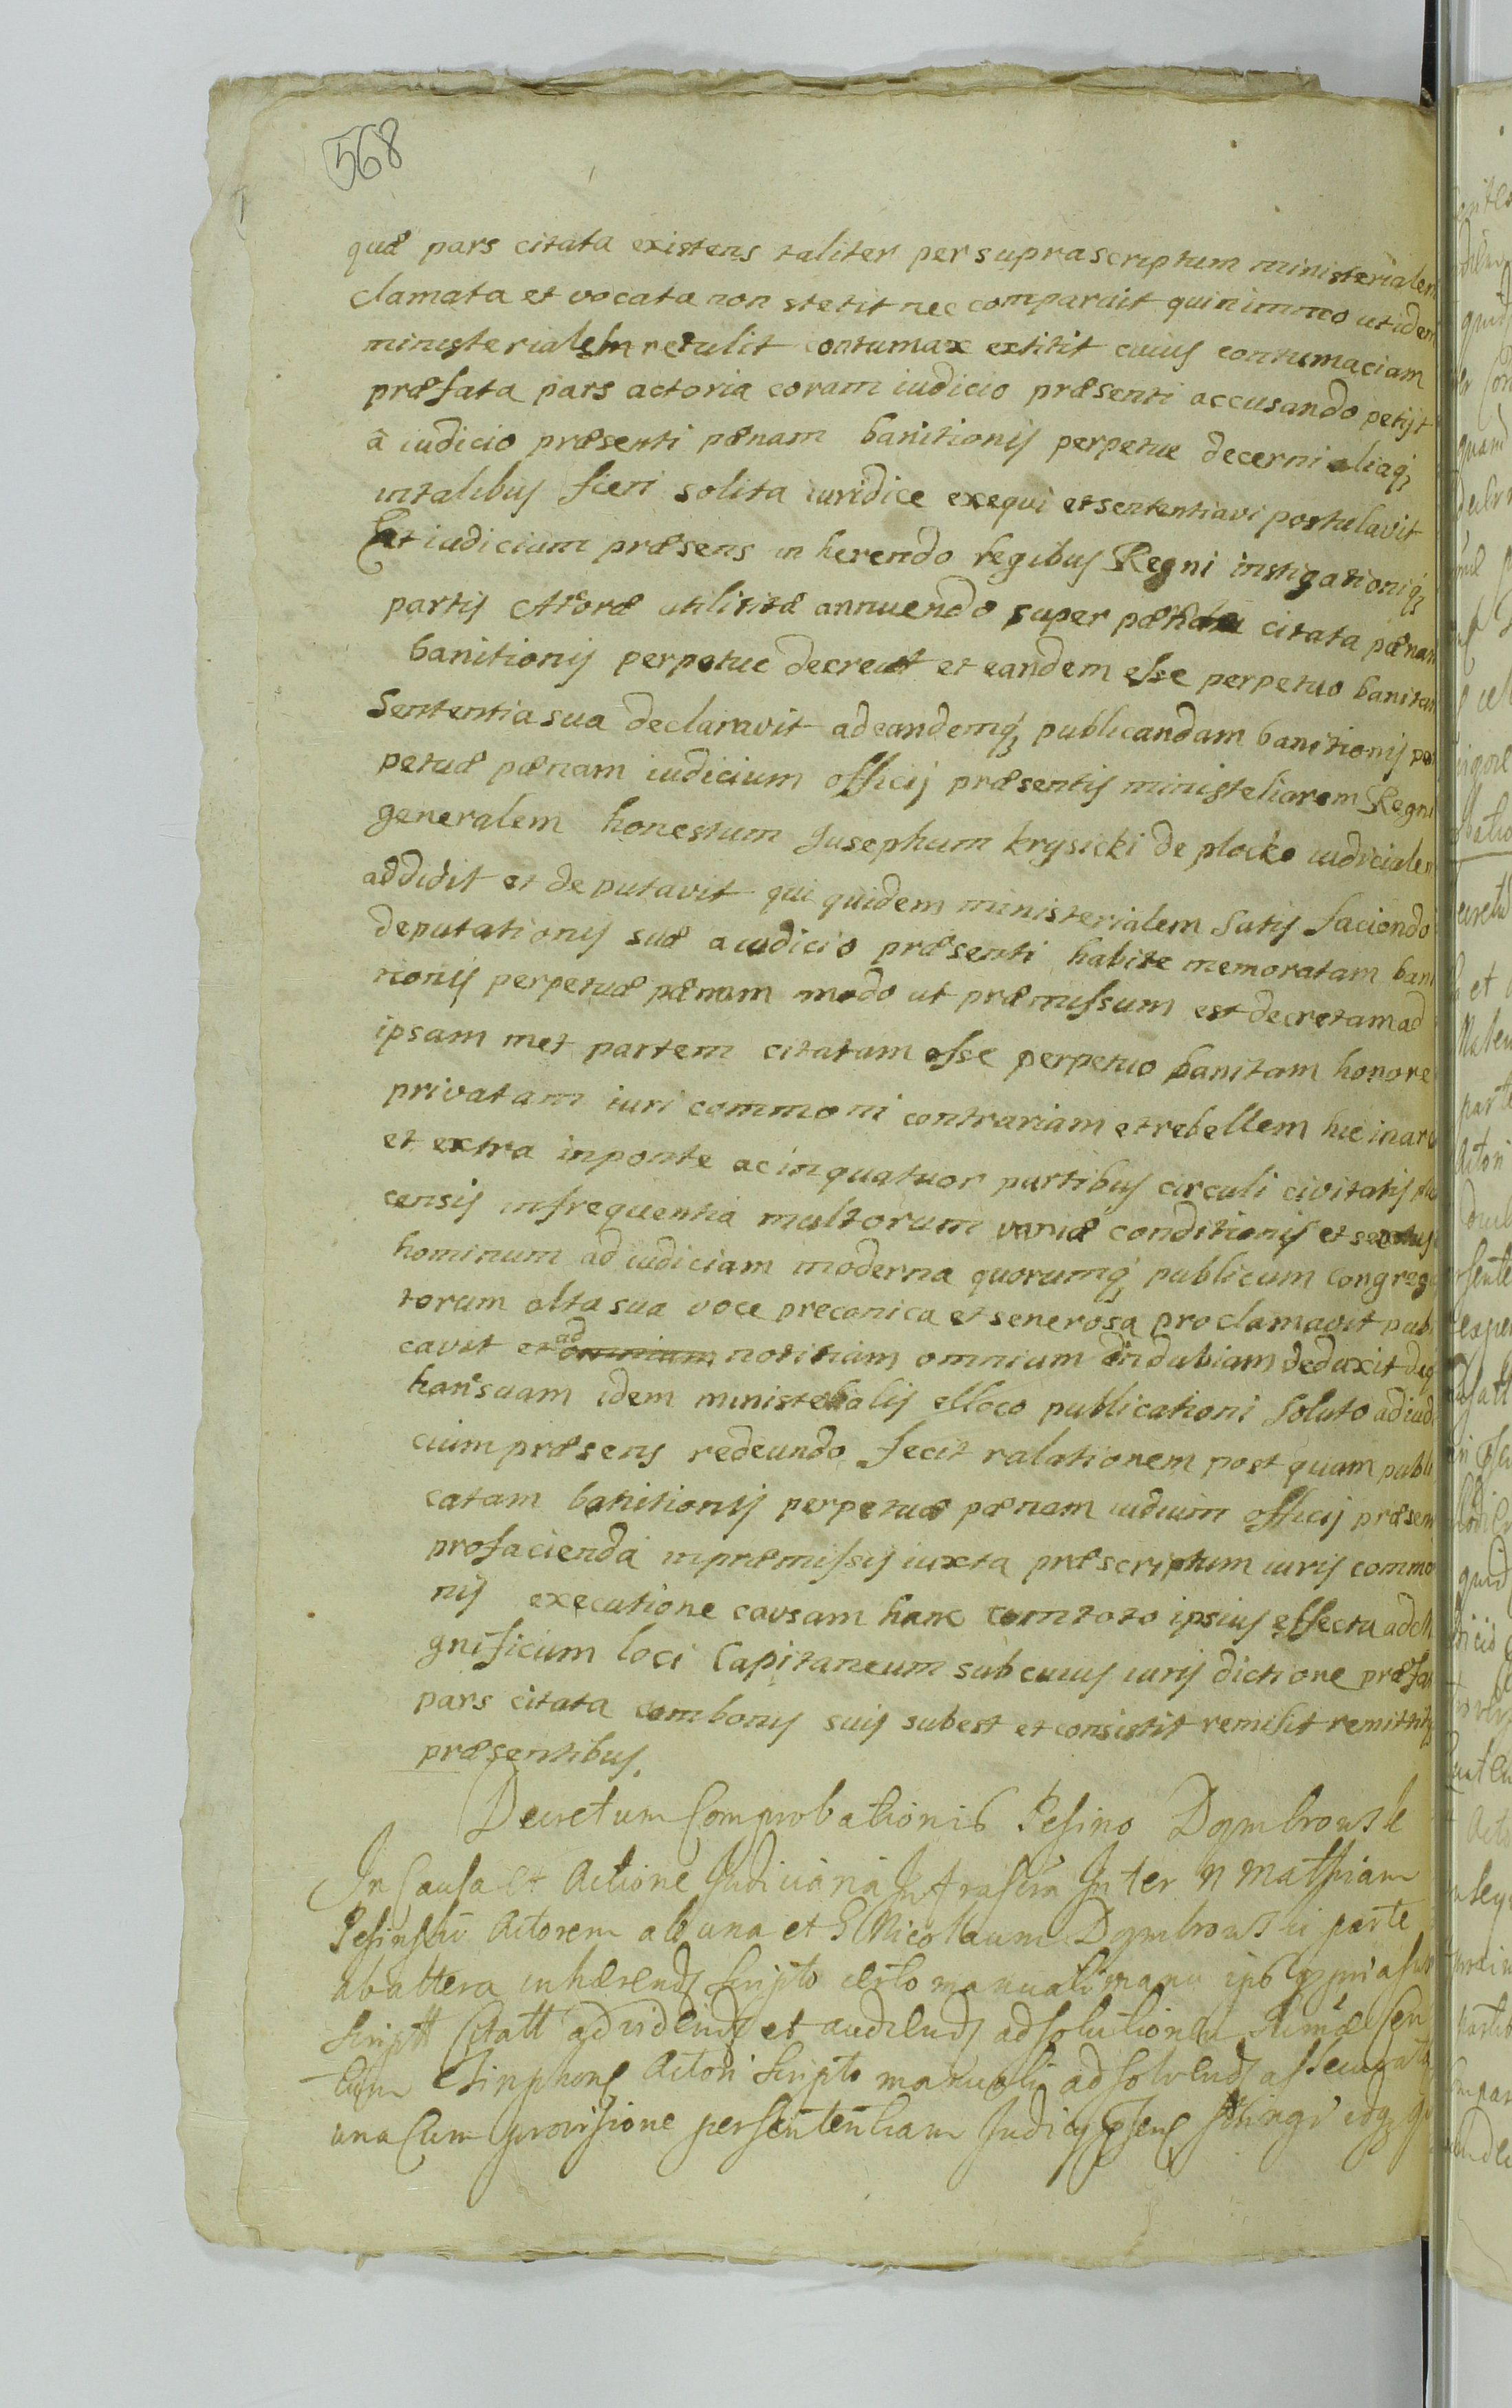 568
quæ pars citata existens taliter per suprascriptum ministerialem
clamata et vocata non stetit nec comparuit quinimmo ut idem
ministerialem retulit contumax extitit cuius contumaciam
præfata pars actoria coram iudicio præsenti accusando petijt
à iudicio præsenti pænam banitionis perpetue decerni aliaq;
in talibus fieri solita iuridice exequi et sententiavi postulavit
Et iudicium præsens in herendo legibus Regni instigationiq;
partis Actoræ utilitæ annuendo super citata pænam
banitionis perpetue decreut et eandem esse perpetuo banitam
Sententia sua declaravit ad eandemq; publicandam banitionis per
petuæ pænam iudicium officij præsentis ministeliarem Regni
generalem honestum Jusephum krysicki de plocko iudicialem
addidit et deputavit qui quidem ministerialem Satis faciendo
deputationis suæ a iudicio præsenti habite memoratam bani
tionis perpetuæ pænam modo ut præmissum est decretam ad
ipsam met partem citatam esse perpetuo banitam honore
privatam iuri commoni contrariam et rebellem hic in
et extra in ponte ac in quatuor partibus circuli civitatis
censis in frequentia multorum variæ conditionis et
hominum ad iudiciam moderna quorumq; publicum congrega
torum alta sua voce preconica et senerosa proclamavit publi
cavit et ad notitiam omnium indubiam deduxit deq
hanc suam idem ministerialis elloco publicationi Soluto ad iudi
cium præsens redeundo fecit ralationem post quam publi
catam banitionis perpetuæ pænam iudium officij præsen
pro facienda in præmissis iuxta præscriptum iuris commo
nis executione causam hanc cum toto ipsius effectu ad
gnificum loci Capitaneum sub cuius iuris dictione præfa
pars citata cum bonis suis subest et consistit remisit remittitq
præsentibus.
Decretum Comprobationis Pesino Dymbrowsk
In Causa et Actione Judiciaria Infrascra Inter N Mathiam
Actorem ab una et G Nicolaum Dymbrowski parte
ab altera inhærend scripto certo manuali manu
script Citatt ad videnda et audiend ad solutionem
Actori Scripto manuali ad solvend
una Cum provisione per sententiam Judicij